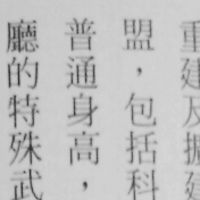 重建及擴建
盟，包括科
普通身高，
廳的特殊武